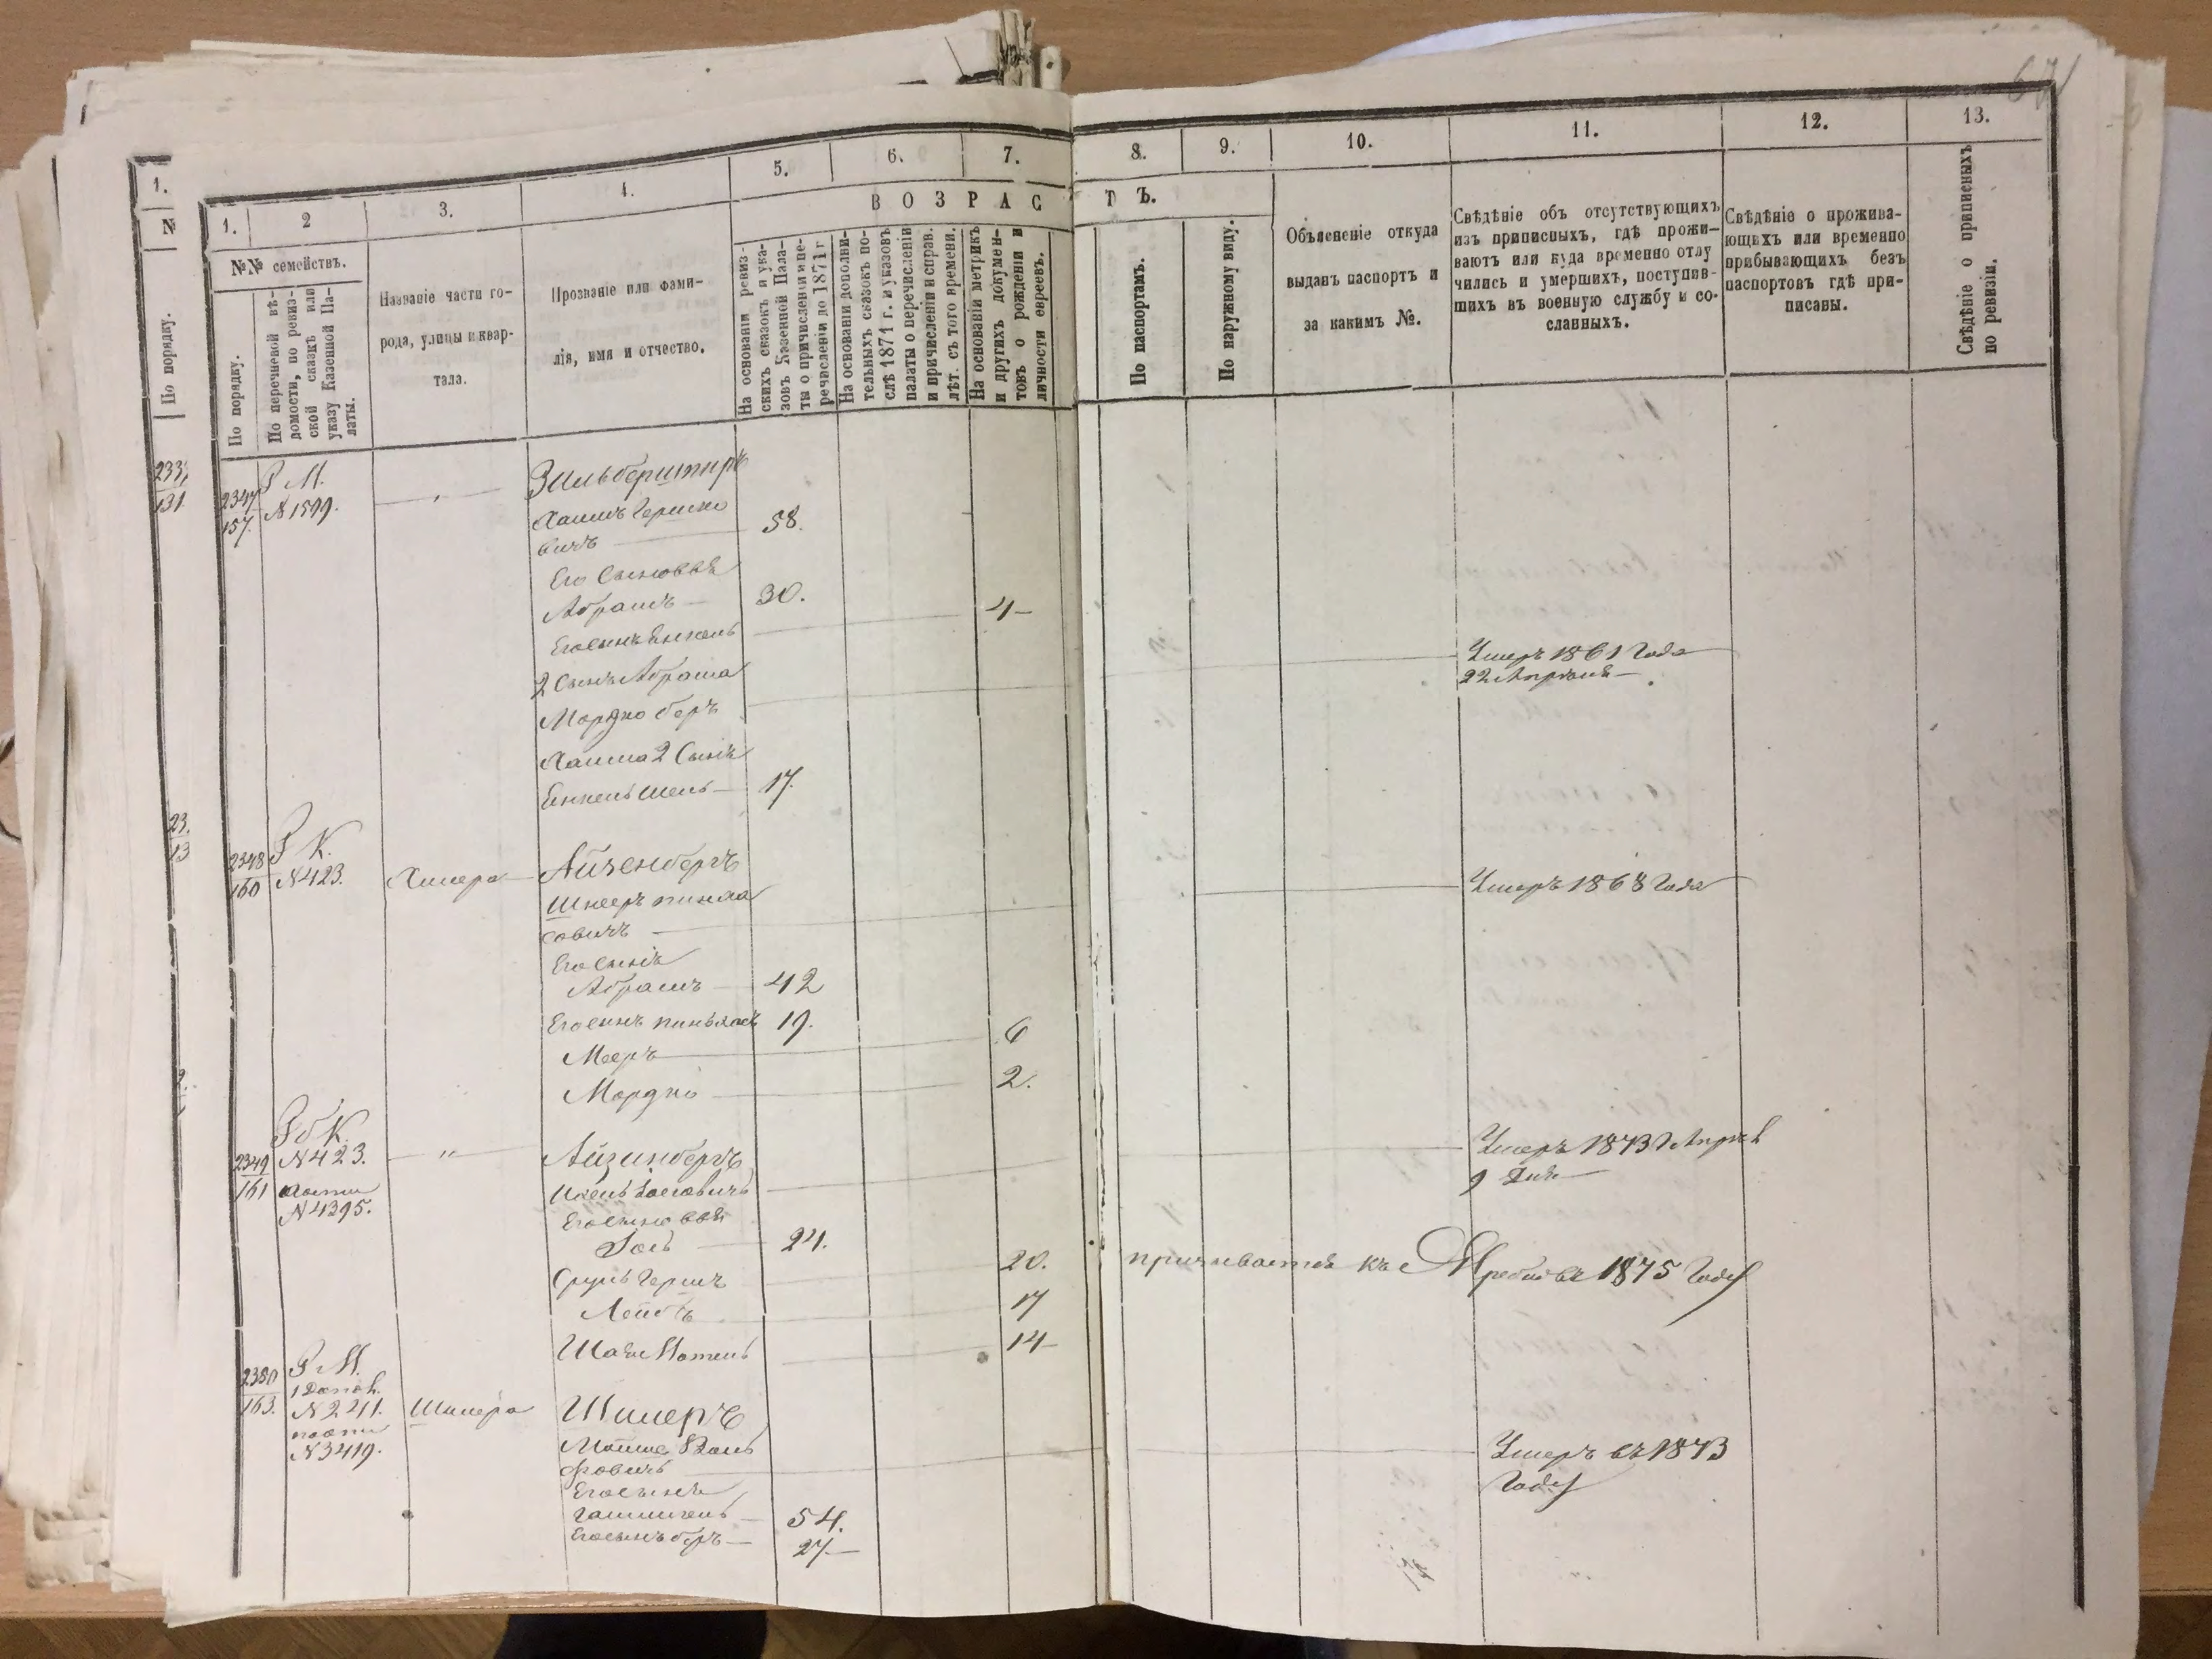 67
1.
N
По порядку.
233
131.
23.
13
2.
1.
2
3.
4.
5.
6.
7.
8.
9.
10.
11.
12.
13.
№№ семействъ.
По порядку.
По перечневой вѣ-
домости, по ревиз-
ской сказкѣ или
указу Казенной Па-
латы.
Названіе части го-
рода, улицы и квар-
тала.
Прозваніе или фами-
лія, имя и отчество.
ВОЗРАС
ТЪ.
На основаніи ревиз-
скихъ сказокъ и ука-
зовъ Казенной Пала-
ты о причисленіи и пе-
речисленіи до 1871 г
На основаніи дополни-
тельныхъ сказокъ по-
слѣ 1871 г. и указовъ
палаты о перечисленіи
и причисленіи и справ.
лѣт. съ того времени.
На основаніи метрикъ
и другихъ докумен-
товъ о рожденіи и
личности евреевъ.
По паспортамъ.
По наружному виду.
Объясненіе откуда
выданъ паспортъ и
за какимъ №.
Свѣдѣніе объ отсутствующихъ
изъ приписныхъ, гдѣ прожи-
ваютъ или куда временно отлу
чились и умершихъ, поступив-
шихъ въ военную службу и со-
сланныхъ.
Свѣдѣніе о прожива-
ющихъ или временно
прибывающихъ безъ
паспортовъ гдѣ при-
писаны.
Свѣдѣніе о приписныхъ
по ревизіи.
2347
157.
Р М.
№ 1599.
Зильберштиръ
Хаимъ Гершко
вичъ
58.
Его Сыновья
Абрамъ 30.
Его сынъ Янкель 4
2 Сынъ Абрама
Мордко беръ
Умеръ 1861 Года
22 Апрѣля
Хаима 2 Сынъ
17.
2348
160
Р К.
№ 423.
Химера
Айзенбергъ
Шнееръ пинха
совичъ
Умеръ 1868 Года
Его сынъ
Абрамъ 42
Его сынъ пинхасъ 19.
Мееръ 6
Мордко 2.
2349
161
Р б К.
№ 423.
№ 4395.
"
Айзинбергъ
Умеръ 1873 Г Апрѣл
9 Дня
Его сыновья
24.
Сруль Гершъ 20.
призывается къ жребію въ 1875 Году
Лейбъ 17
14
2350
163.
Р М.
1 Допол.
№ 2211.
№ 3419.
Шимера
Шимеръ
Умеръ въ 1873
Году
Его сынъ
54.
Его сынъ беръ 27